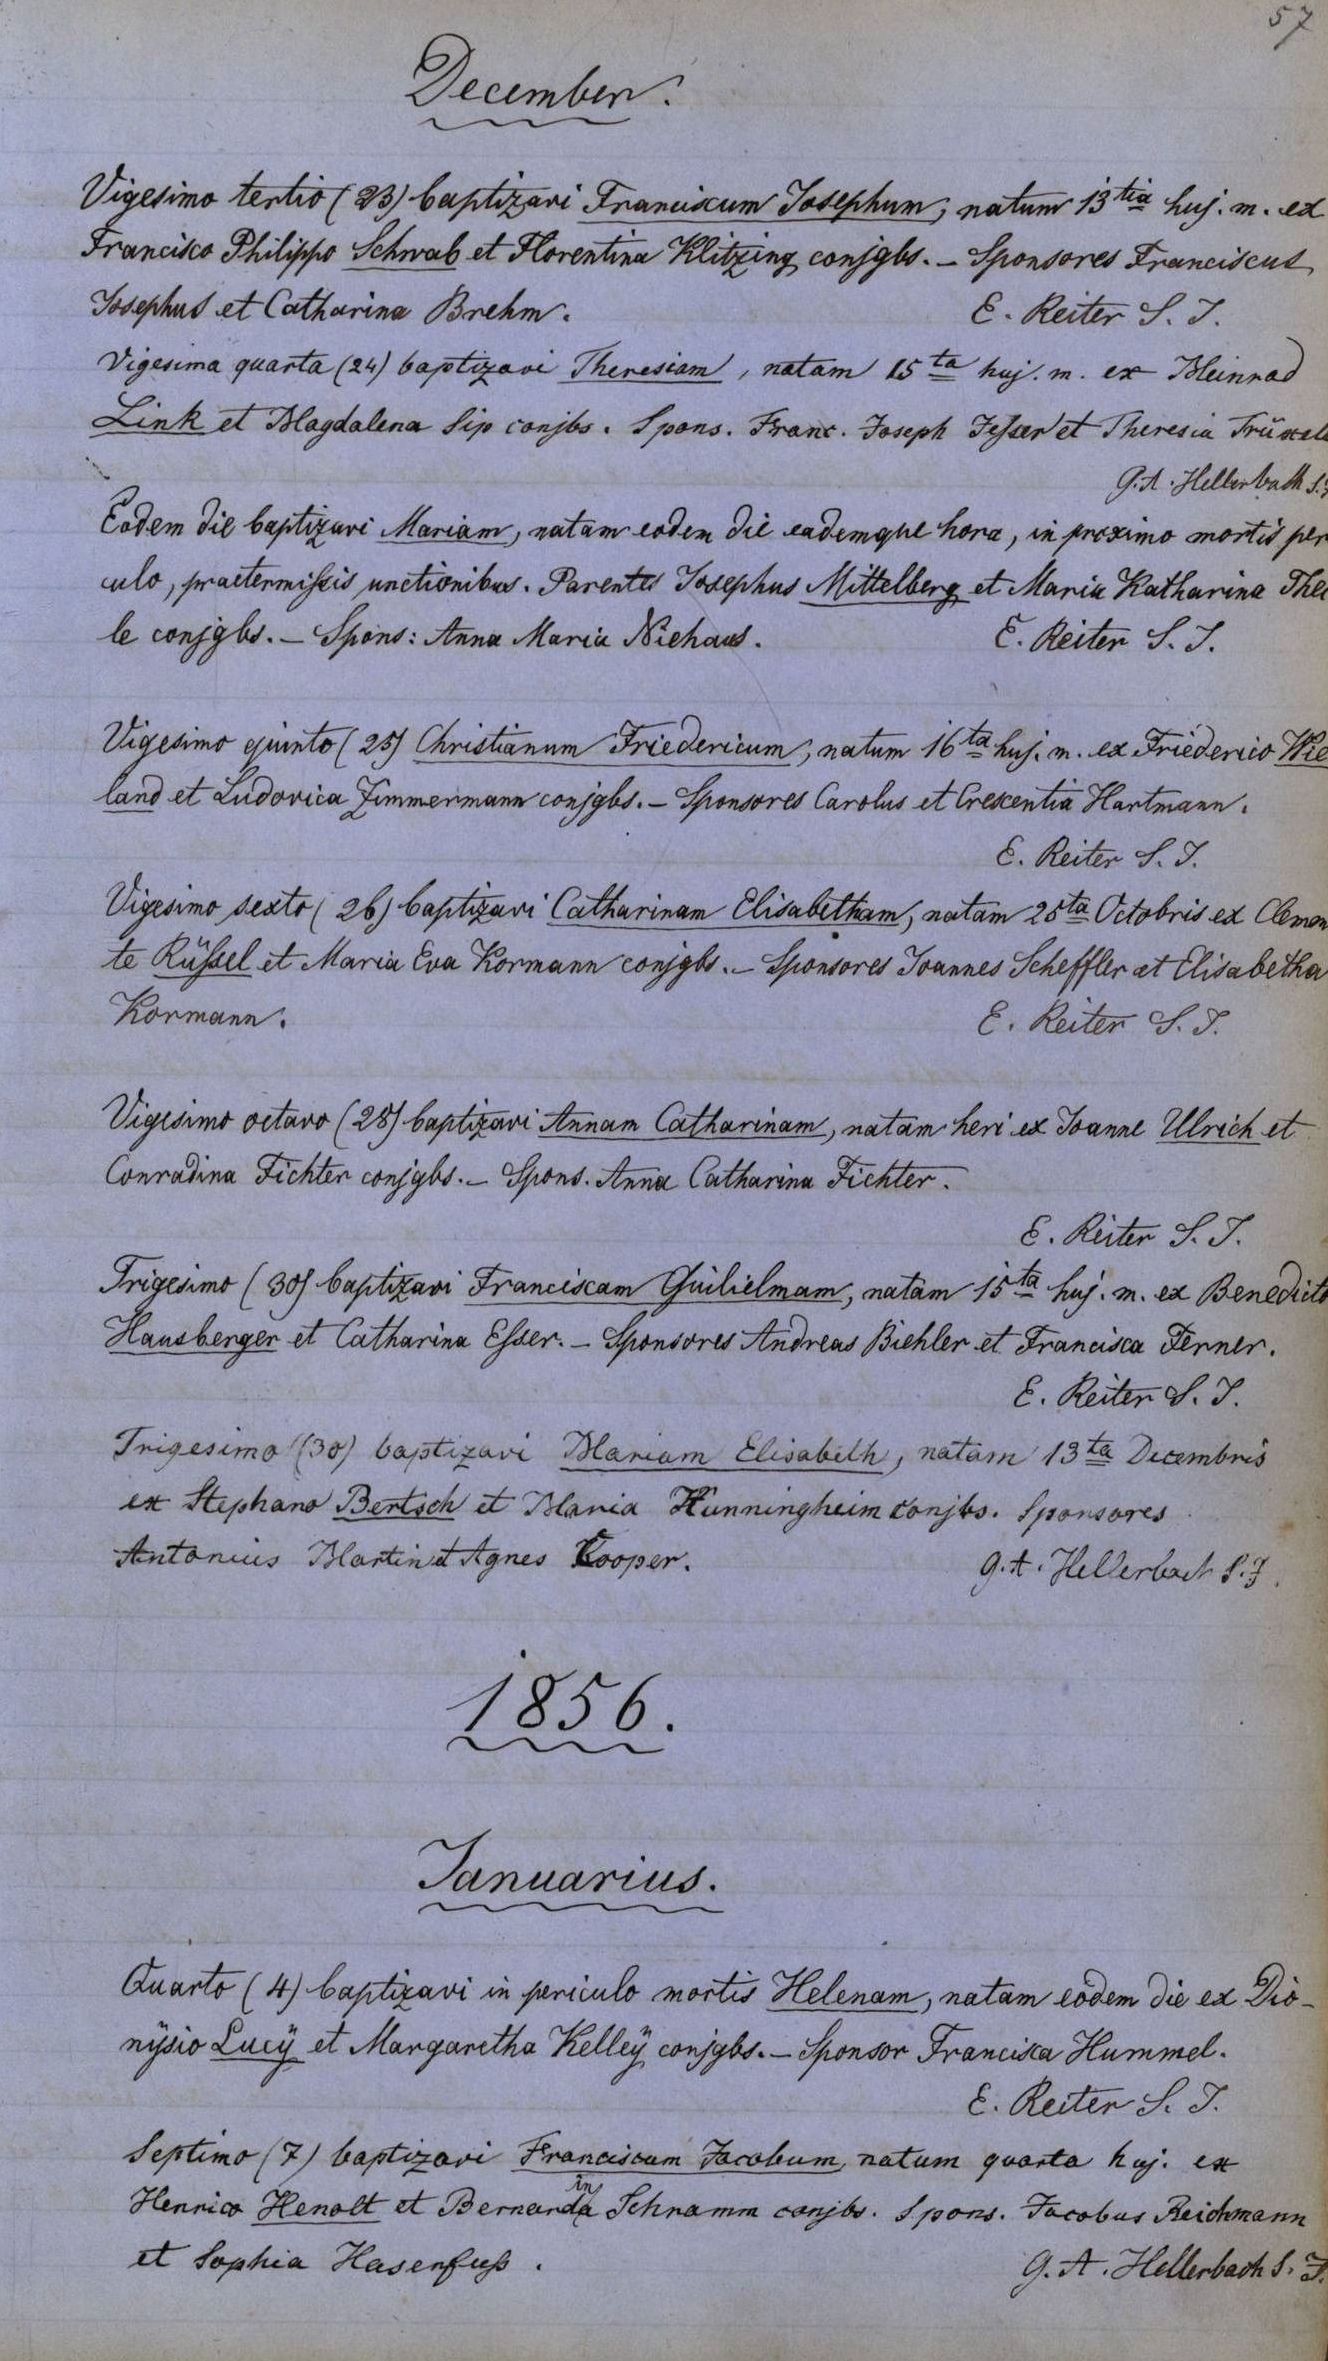 57
December.
Vigesimo tertio (23) baptizavi Franciscum Josephum, natum 13tia huj. m. ex
Francisco Philippo Schwab et Florentina Klitzing conjgbs. – Sponsores Franciscus
Josephus et Catharina Brehm. E. Reiter S. J.
Vigesima quarta (24) baptizavi Theresiam, natam 15ta huj. m. ex Meinrad
Link et Magdalena Sip conjbs. Spons. Franc. Joseph Jesser et Theresia
G. A. Hellerbach S. J.
Eodem die baptizavi Mariam, natam eodem die eademque hora, in proximo mortis peri
culo, praetermissis unctionibus. Parentes Josephus Mittelberg et Maria Katharina Thei
le conjgbs. – Spons: Anna Maria Niehaus. E. Reiter S. J.
Vigesimo quinto (25) Christianum Friedericum, natum 16ta huj. m. ex Friederico Wie
land et Ludovica Zimmermann conjgbs. – Sponsores Carolus et Crescentia Hartmann.
E. Reiter S. J.
Vigesimo sexto (26) baptizavi Catharinam Elisabetham, natam 25ta Octobris ex Clemen
te Rüssel et Maria Eva Kormann conjgbs. – Sponsores Joannes Scheffler et Elisabetha
Kormann. E. Reiter S. J.
Vigesimo octavo (28) baptizavi Annam Catharinam, natam heri ex Joanne Ulrich et
Conradina Fichter conjgbs. – Spons. Anna Catharina Fichter.
E. Reiter S. J.
Trigesimo (30) baptizavi Franciscam Guilielmam, natam 15ta huj. m. ex Benedicto
Hausberger et Catharina Esser. – Sponsores Andreas Biehler et Francisca Ferner.
E. Reiter S. J.
Trigesima (30) baptizavi Mariam Elisabeth, natam 13ta Decembris
ex Stephano Bertsch et Maria Hunningheim conjbs. Sponsores
Antonius Martin et Agnes Cooper. G. A. Hellerbach S. J.
1856.
Januarius.
Quarto (4) baptizavi in periculo mortis Helenam, natam eodem die ex Dio-
nÿsio Lucÿ et Margaretha Kelleÿ conjgbs. – Sponsor Francisca Hummel.
E. Reiter S. J.
Septimo (7) baptizavi Franciscum Jacobum, natum quarta huj. ex
Henrico Henolt et Bernardina Schramm conjbs. Spons. Jacobus Reichmann
et Sophia Hasenfuss. G. A. Hellerbach S. J.